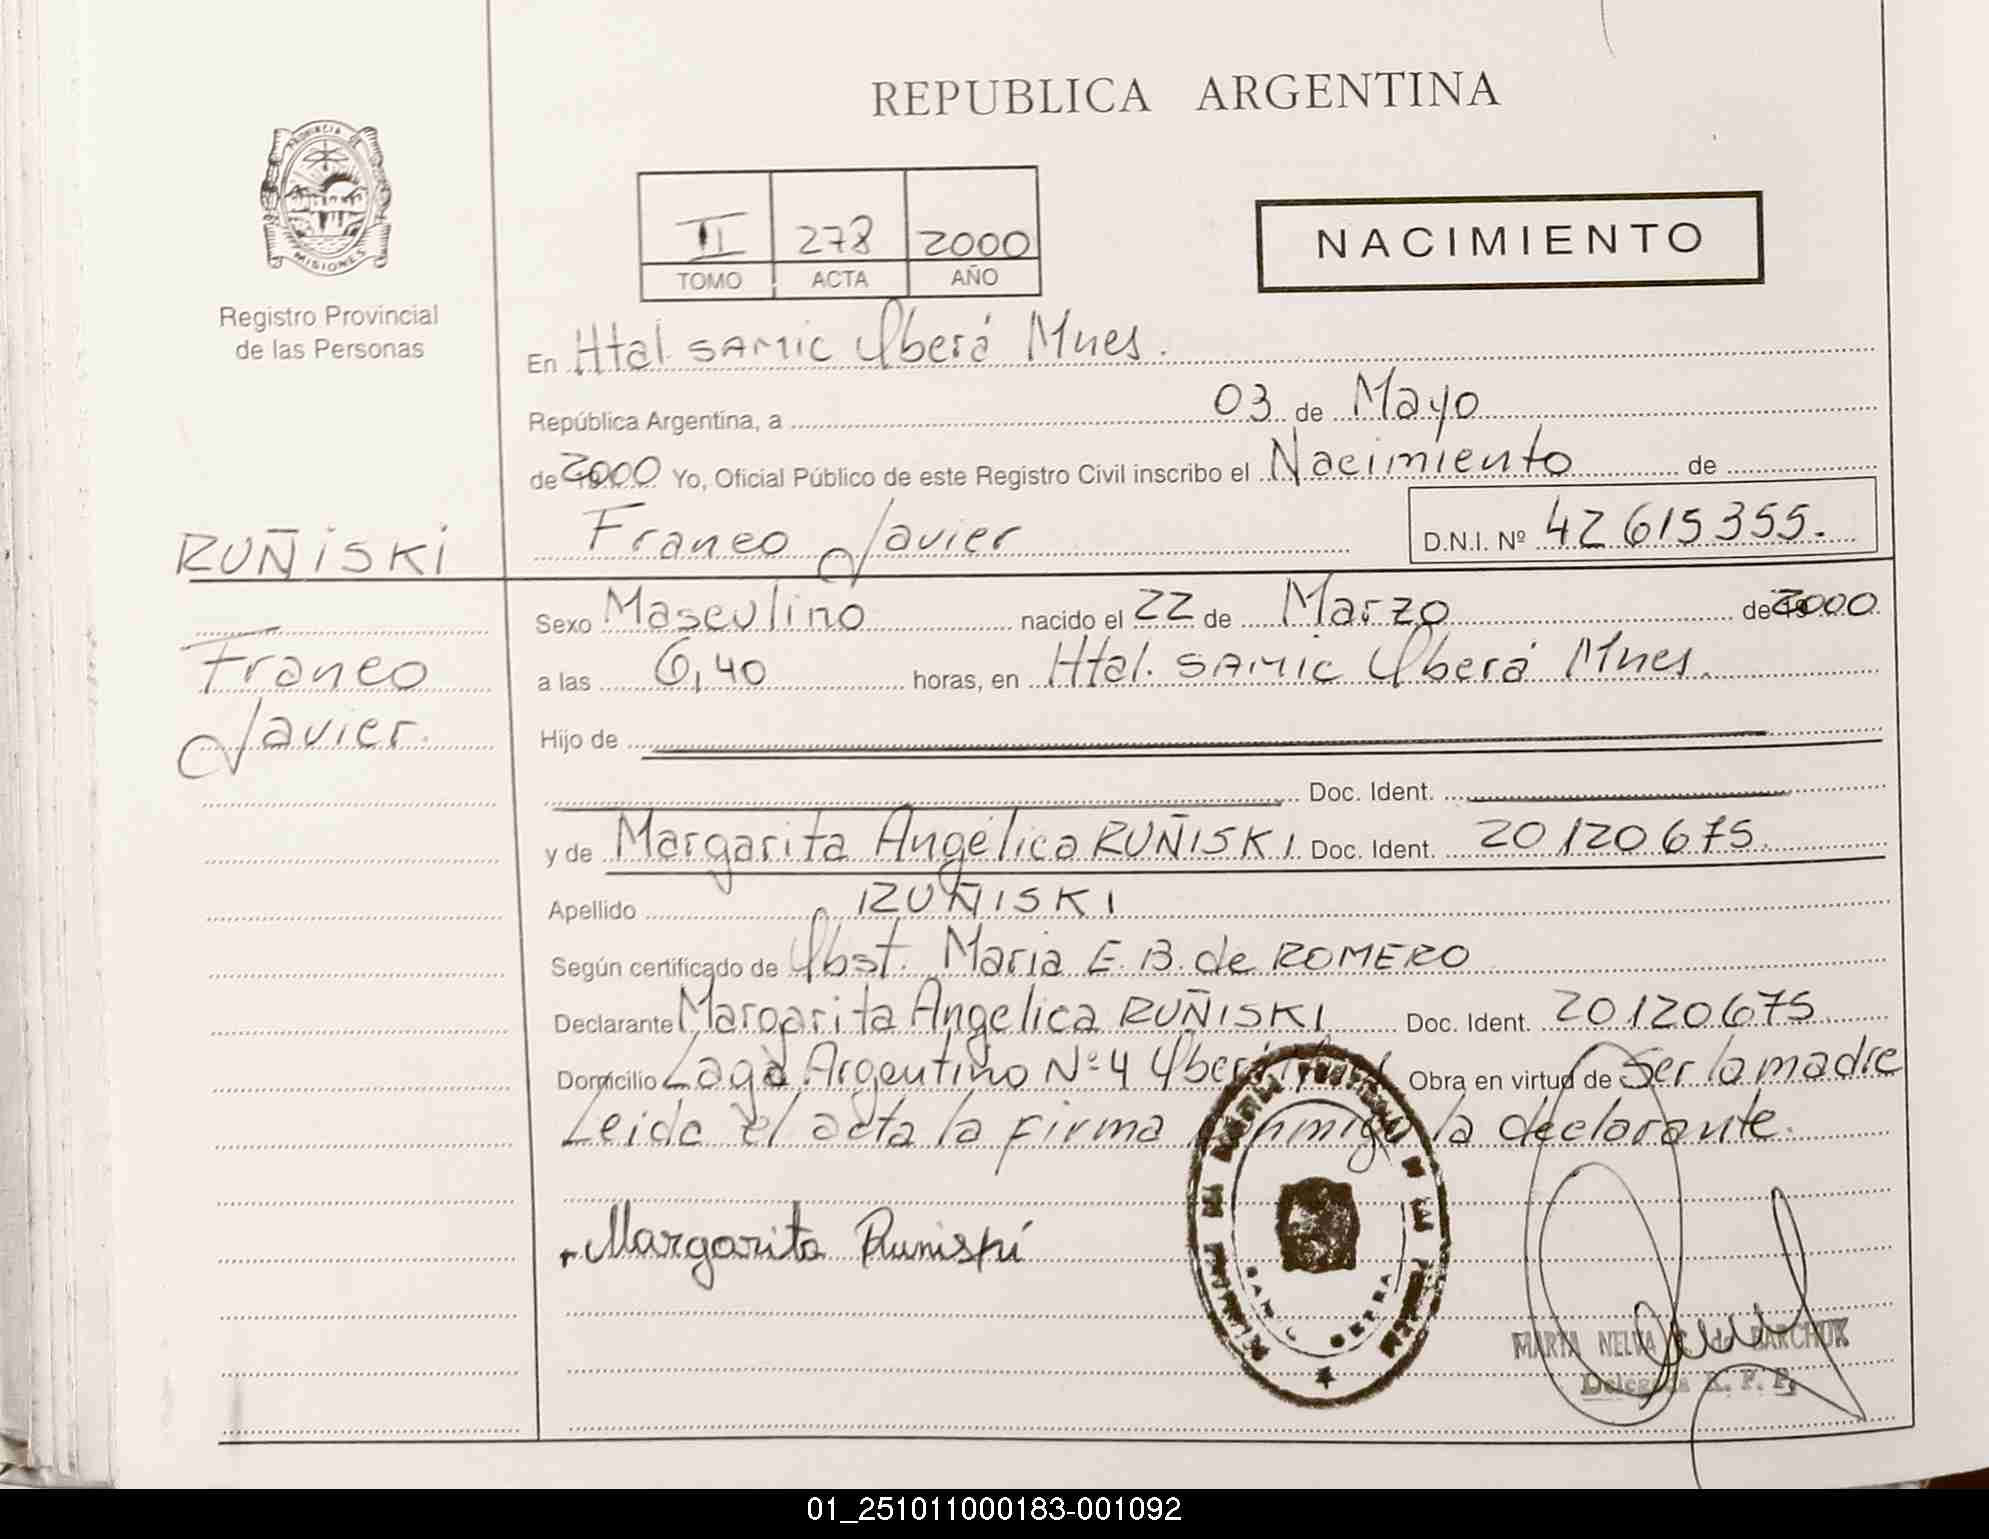 REPUBLICA ARGENTINA
PROVINCIA DE MISIONES
Registro Provincial
de las Personas
II 278 2000
TOMO ACTA AÑO
NACIMIENTO
En Htal. SAMIC Oberá Mnes.
República Argentina, a 03 de Mayo
de 2000 Yo, Oficial Público de este Registro Civil inscribo el Nacimiento de
Franco Javier D.N.I. Nº 42 615 355.
RUÑISKI
Franco
Javier.
Sexo Masculino nacido el 22 de Marzo de 2000
a las 6,40 horas, en Htal. SAMIC Oberá Mnes.
Hijo de
Doc. Ident.
y de Margarita Angélica RUÑISKI Doc. Ident. 20 120 675.
Apellido RUÑISKI
Según certificado de Obst. Maria E. B. de ROMERO
Declarante Margarita Angelica RUÑISKI Doc. Ident. 20 120 675
Domicilio Lago Argentino Nº 4 Oberá Obra en virtud de Ser la madre
Leida el acta la firma conmigo la declarante.
Margarita Runiski
MARTA NELVA de BARCHUK
Delegada R. P. P.
01_251011000183-001092